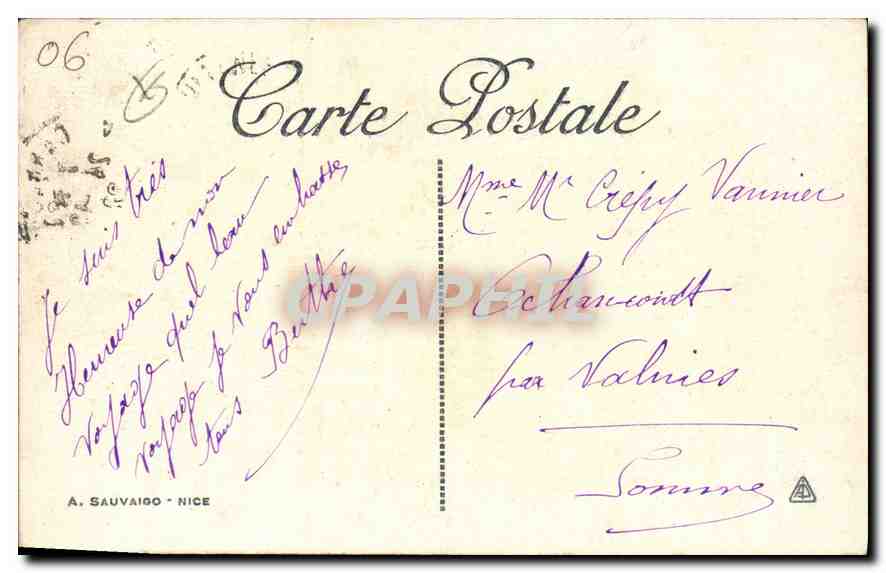 06
Carte Postale
Je suis très
Heureuse de mon
voyage quel beau
voyage je vous embrasse
tous Berthe
Mme Mr Crépy Vannier
par
Somme
A. SAUVAIGO - NICE
CPAPHIL